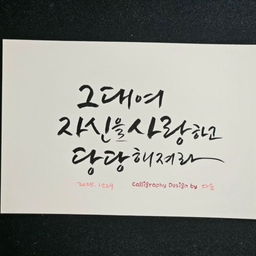 그대여
자신을 사랑하고
당당해져라
Calligraphy Design by 다솜